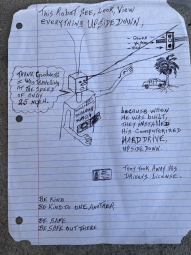 THIS ROBOT SEE, LOOK, VIEW
EVERYTHING UPSIDE DOWN.
THANK GOODNESS
I WAS TRAVELING
AT THE SPEED
OF ONLY
25 M.P.H.
BECAUSE WHEN
HE WAS BUILT,
THEY INSTALLED
HIS COMPUTERIZED
HARD DRIVE,
UPSIDE DOWN.
THEY TOOK AWAY HIS
DRIVERS LICENSE.
BE KIND.
BE KIND TO ONE ANOTHER.
BE SAFE
BE SAFE OUT THERE